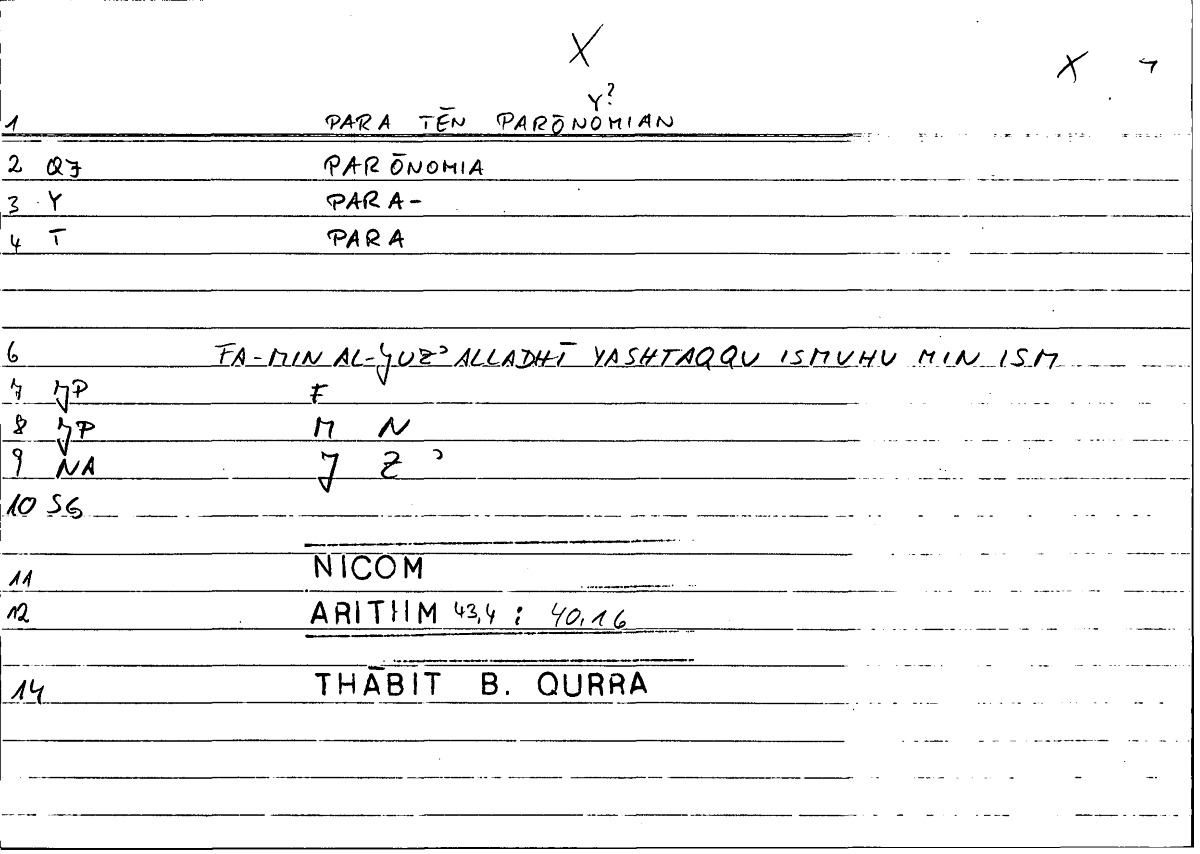 X
X
Y?
1 PARA TĒN PARŌNOMIAN
2 QJ PARŌNOMIA
3 Y PARA-
4 T PARA
6 FA-MIN AL-JUZʾ ALLADHĪ YASHTAQQU ISMUHU MIN ISM
7 JP F
8 JP M N
9 NA J Z ʾ
10 SG
11 NICOM
12 ARITHM 43,4 ; 40,16
14 THĀBIT B. QURRA